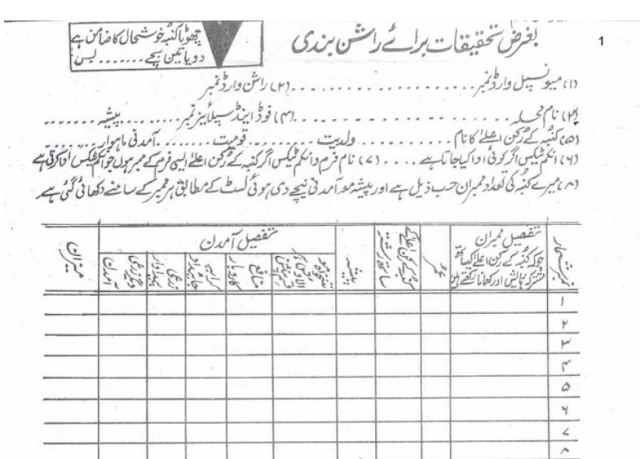 بغرض تحقیقات برائے راشن بندی
چھوٹا کنبہ خوشحال کا ضامن ہے
دو یا تین بچے ....... بس
1
(۱) میونسپل وارڈ نمبر ............ (۲) راشن وارڈ نمبر
(۳) نام محلہ ............ (۴) فوڈ اینڈ سپلائیز نمبر ........ پیشہ ........
(۵) کنبہ کے رکن اعلےٰ کا نام ........ ولدیت ........ قومیت ........ آمدنی ماہوار ........
(۶) انکم ٹیکس اگر کوئی ادا کیا جاتا ہے .... (۷) نام فرم و انکم ٹیکس اگر کنبہ کے رکن اعلےٰ ایسی فرم کے ممبر ہوں جو انکم ٹیکس ادا کرتی ہے
(۸) میرے کنبہ کی تعداد ممبران حسب ذیل ہے اور پیشہ معہ آمدنی نیچے دی ہوئی لسٹ کے مطابق ہر ممبر کے سامنے دکھائی گئی ہے
نمبر شمار
تفصیل ممبران
جو کہ کنبہ کے رکن اعلےٰ کیساتھ
مشترکہ رہائش اور کھانا رکھتے ہیں
عمر
کنبے کے رکن اعلےٰ
ساتھ رشتہ
پیشہ
تفصیل آمدن
تنخواہ معہ
الاؤنس
منافع
کاروبار
کرایہ
جائیداد
زرعی
پیداوار
دیگر زرعی
آمدن
میزان
۱
۲
۳
۴
۵
۶
۷
۸